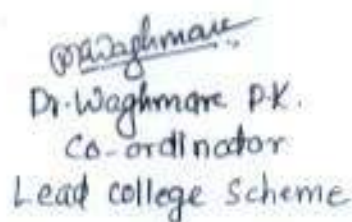 Dr. Waghmare P.K.
Co-ordinator
Lead college Scheme